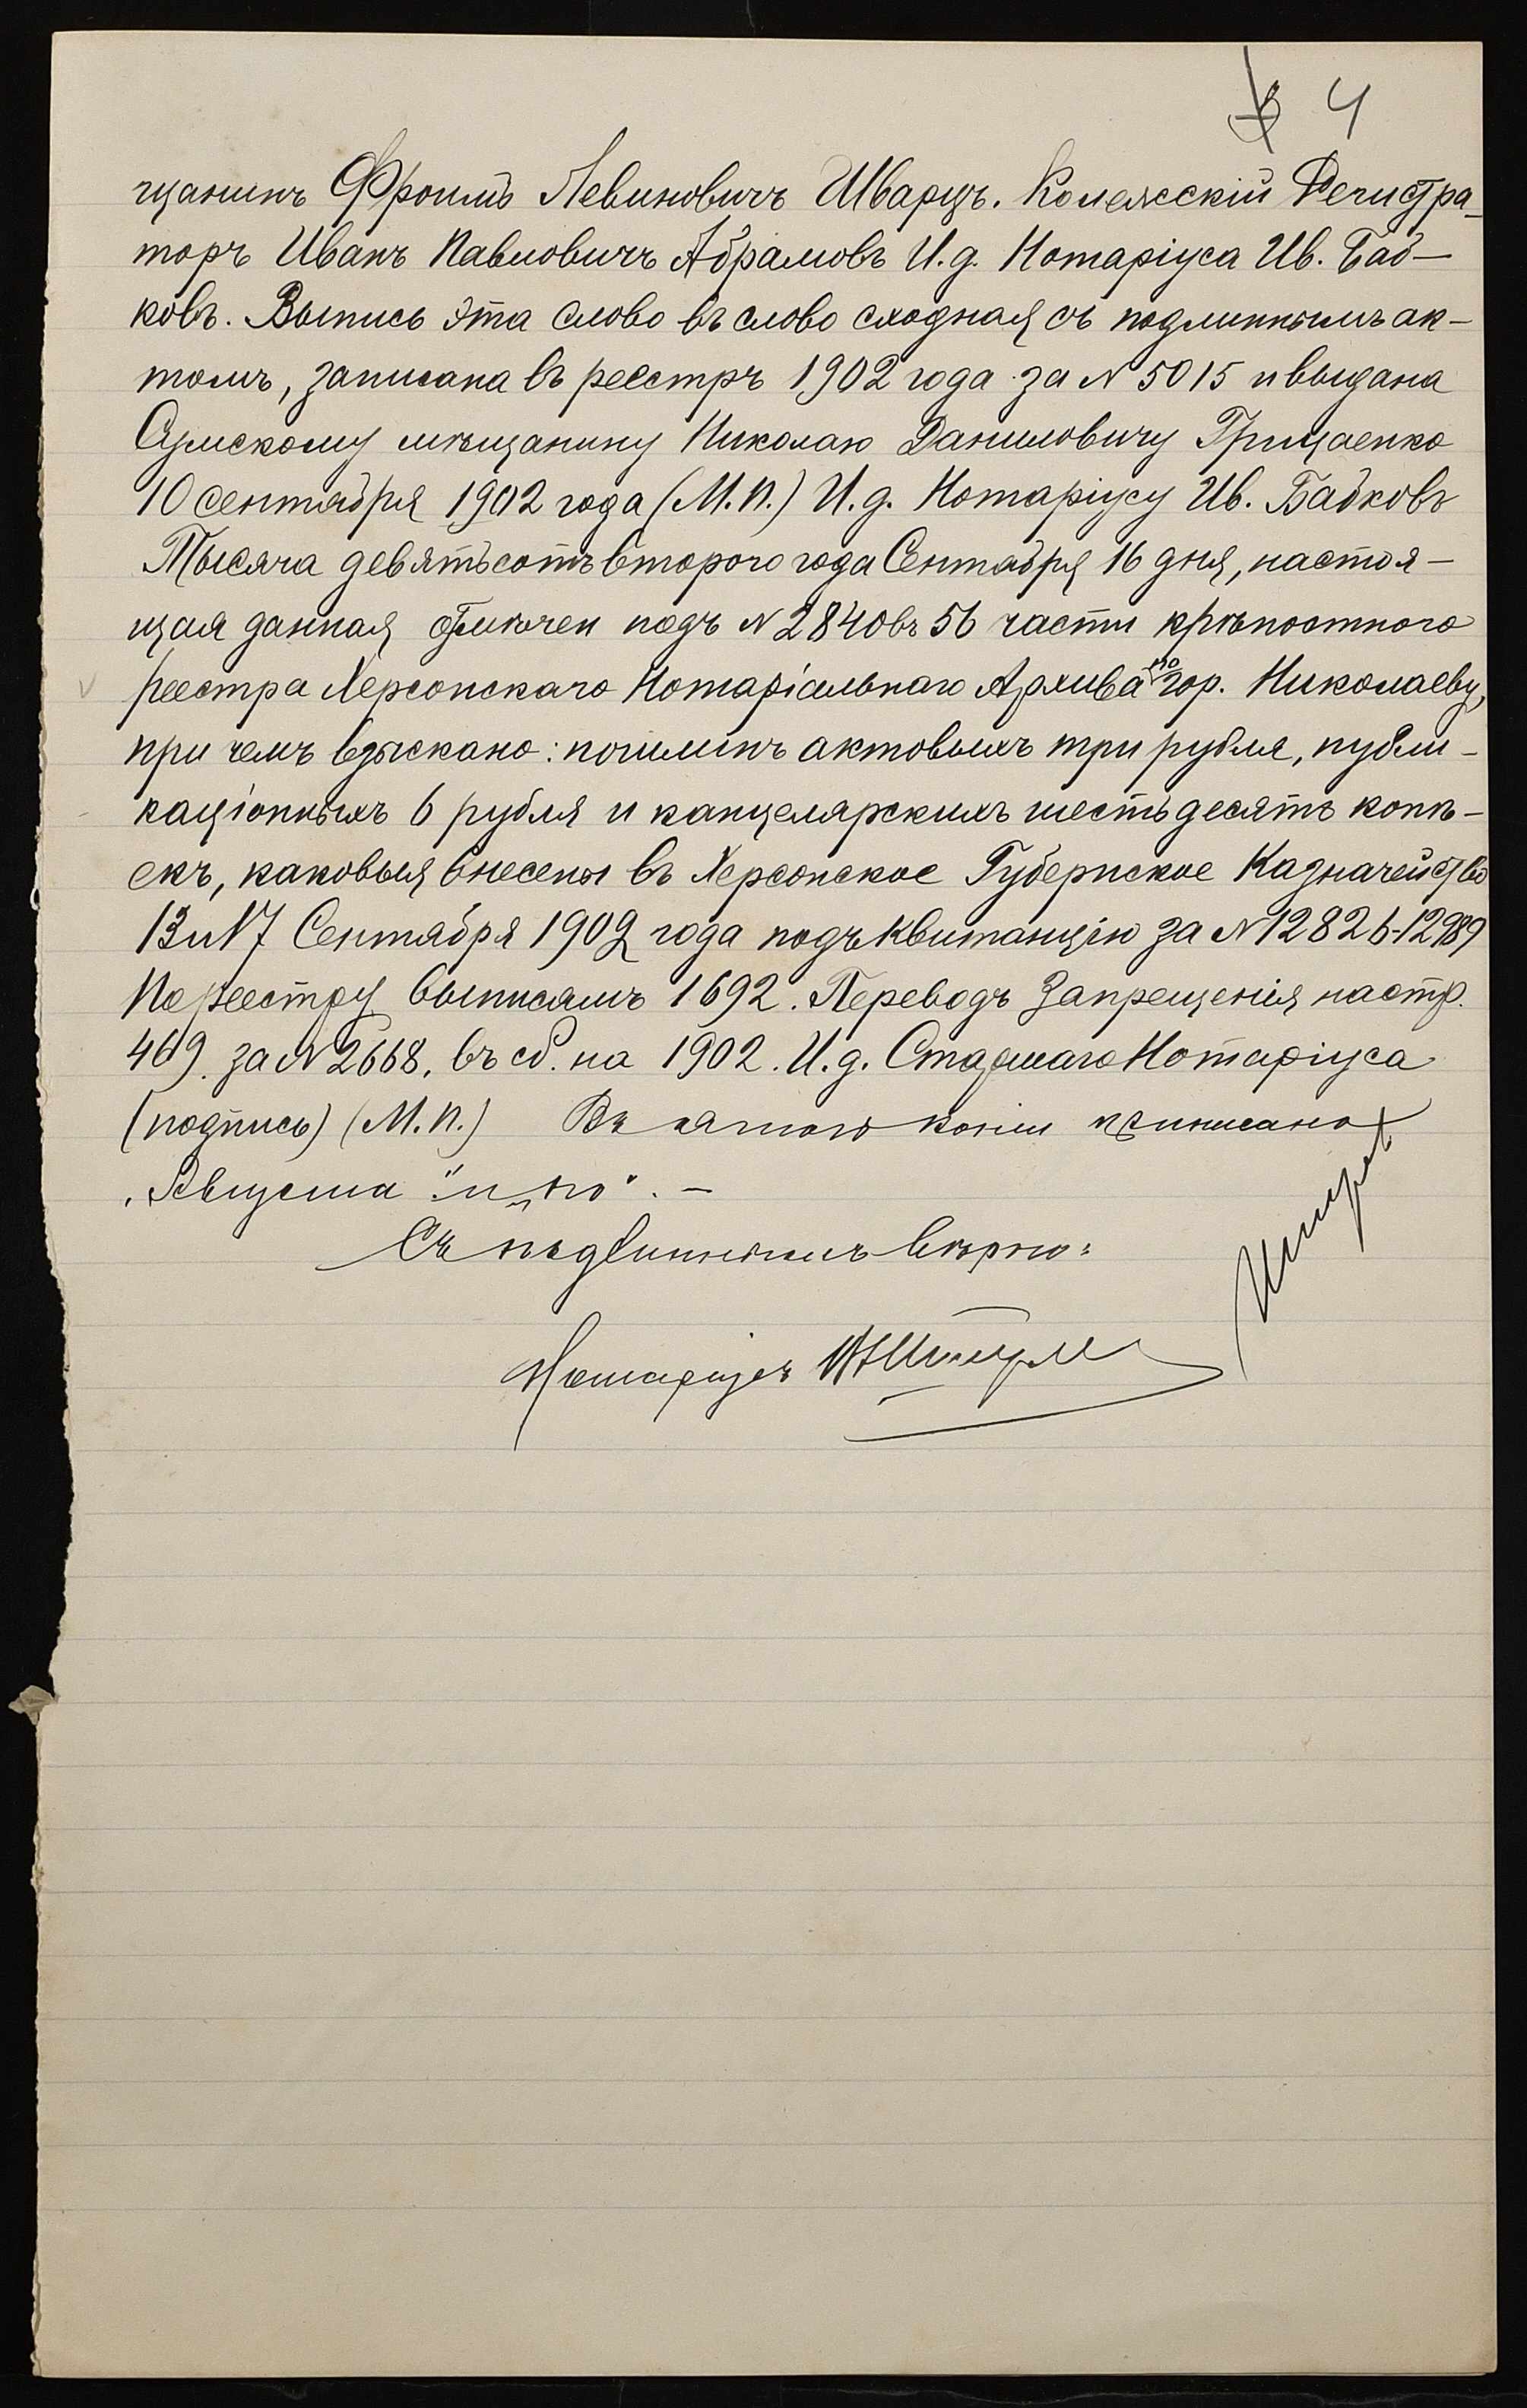 4
щанинъ Фроимъ Левиковичъ Шварцъ. Колежсскій Регистра-
торъ Иванъ Павловичъ Абрамовъ И.д. Нотаріуса Ив. Баб-
ковъ. Выпись эта слово въ слово сходная съ подлиннымъ ак-
томъ, записана въ реестръ 1902 года за N 5015 и выдана
Сумскому мѣщанину Николаю Даниловичу Грицаенко
10 сентября 1902 года (М.П.) И.д. Нотаріусу Ив. Бабковъ
Тысяча девятьсотъ второго года Сентября 16 дня, настоя-
щая данная отмѣчен подъ N 2840 въ 56 части крѣпостного
реестра Херсонскаго Нотаріальнаго Архива по гор. Николаеву,
при чемъ взыскано: пошлинъ актовыхъ три рубля, публи-
каціонныхъ 6 рубля и канцелярскихъ шестьдесятъ копѣ-
екъ, каковыя внесены въ Херсонское Губернское Казначейство
13 и 17 Сентября 1902 года подъ квитанцію за N 12826-12989
По реестру выписямъ 1692. Переводъ Запрещенія на стр.
469. за N 2668. въ сб. на 1902. И.д. Старшаго Нотаріуса
(подпись) (М.П.) Въ копіи приписано
„Августа" и „по". -
Съ подлиннымъ вѣрно:
Нотаріусъ Штурм